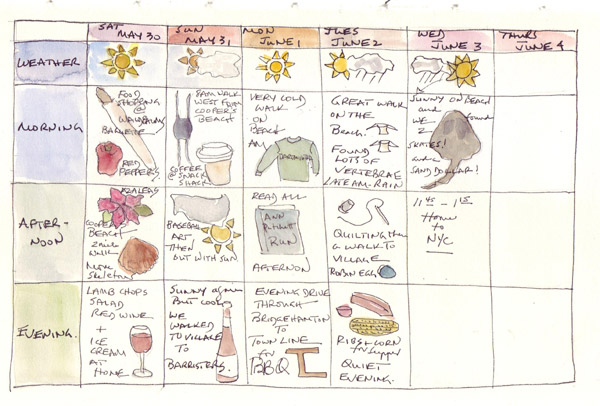 SAT
MAY 30
SUN
MAY 31
MON
JUNE 1
TUES
JUNE 2
WED
JUNE 3
THURS
JUNE 4
WEATHER
MORNING
FOOD
SHOPPING
@
BAGUETTE
RED
PEPPERS
8AM WALK
WEST FROM
COOPER'S
BEACH
COFFEE
@ SNACK
SHACK
VERY COLD
WALK
ON
BEACH
AM
GREAT WALK
ON THE
BEACH.
FOUND
LOTS OF
VERTEBRAE
LATE AM. RAIN
SUNNY ON BEACH
and
WE found
2
SKATES!
and a
SAND DOLLAR!
AFTER-
NOON
AZALEAS
COOPERS
BEACH
2 mile
walk
skeleton
BASEBALL
ART
THEN
OUT WITH SUN
READ ALL
ANN
PATCHETT
RUN
AFTERNOON
QUILTING then
a WALK TO
VILLAGE
ROBIN EGG
11 45 - 1 15
Home
to
NYC
EVENING.
LAMB CHOPS
SALAD
RED WINE
+
ICE
CREAM
AT
HOME
SUNNY again
BUT COOL
WE
WALKED
TO VILLAGE
TO
BARRISTERS.
EVENING DRIVE
THROUGH
BRIDGEHAMPTON
TO
TOWN LINE
for
BBQ
RIBS + CORN
for supper
QUIET
EVENING.